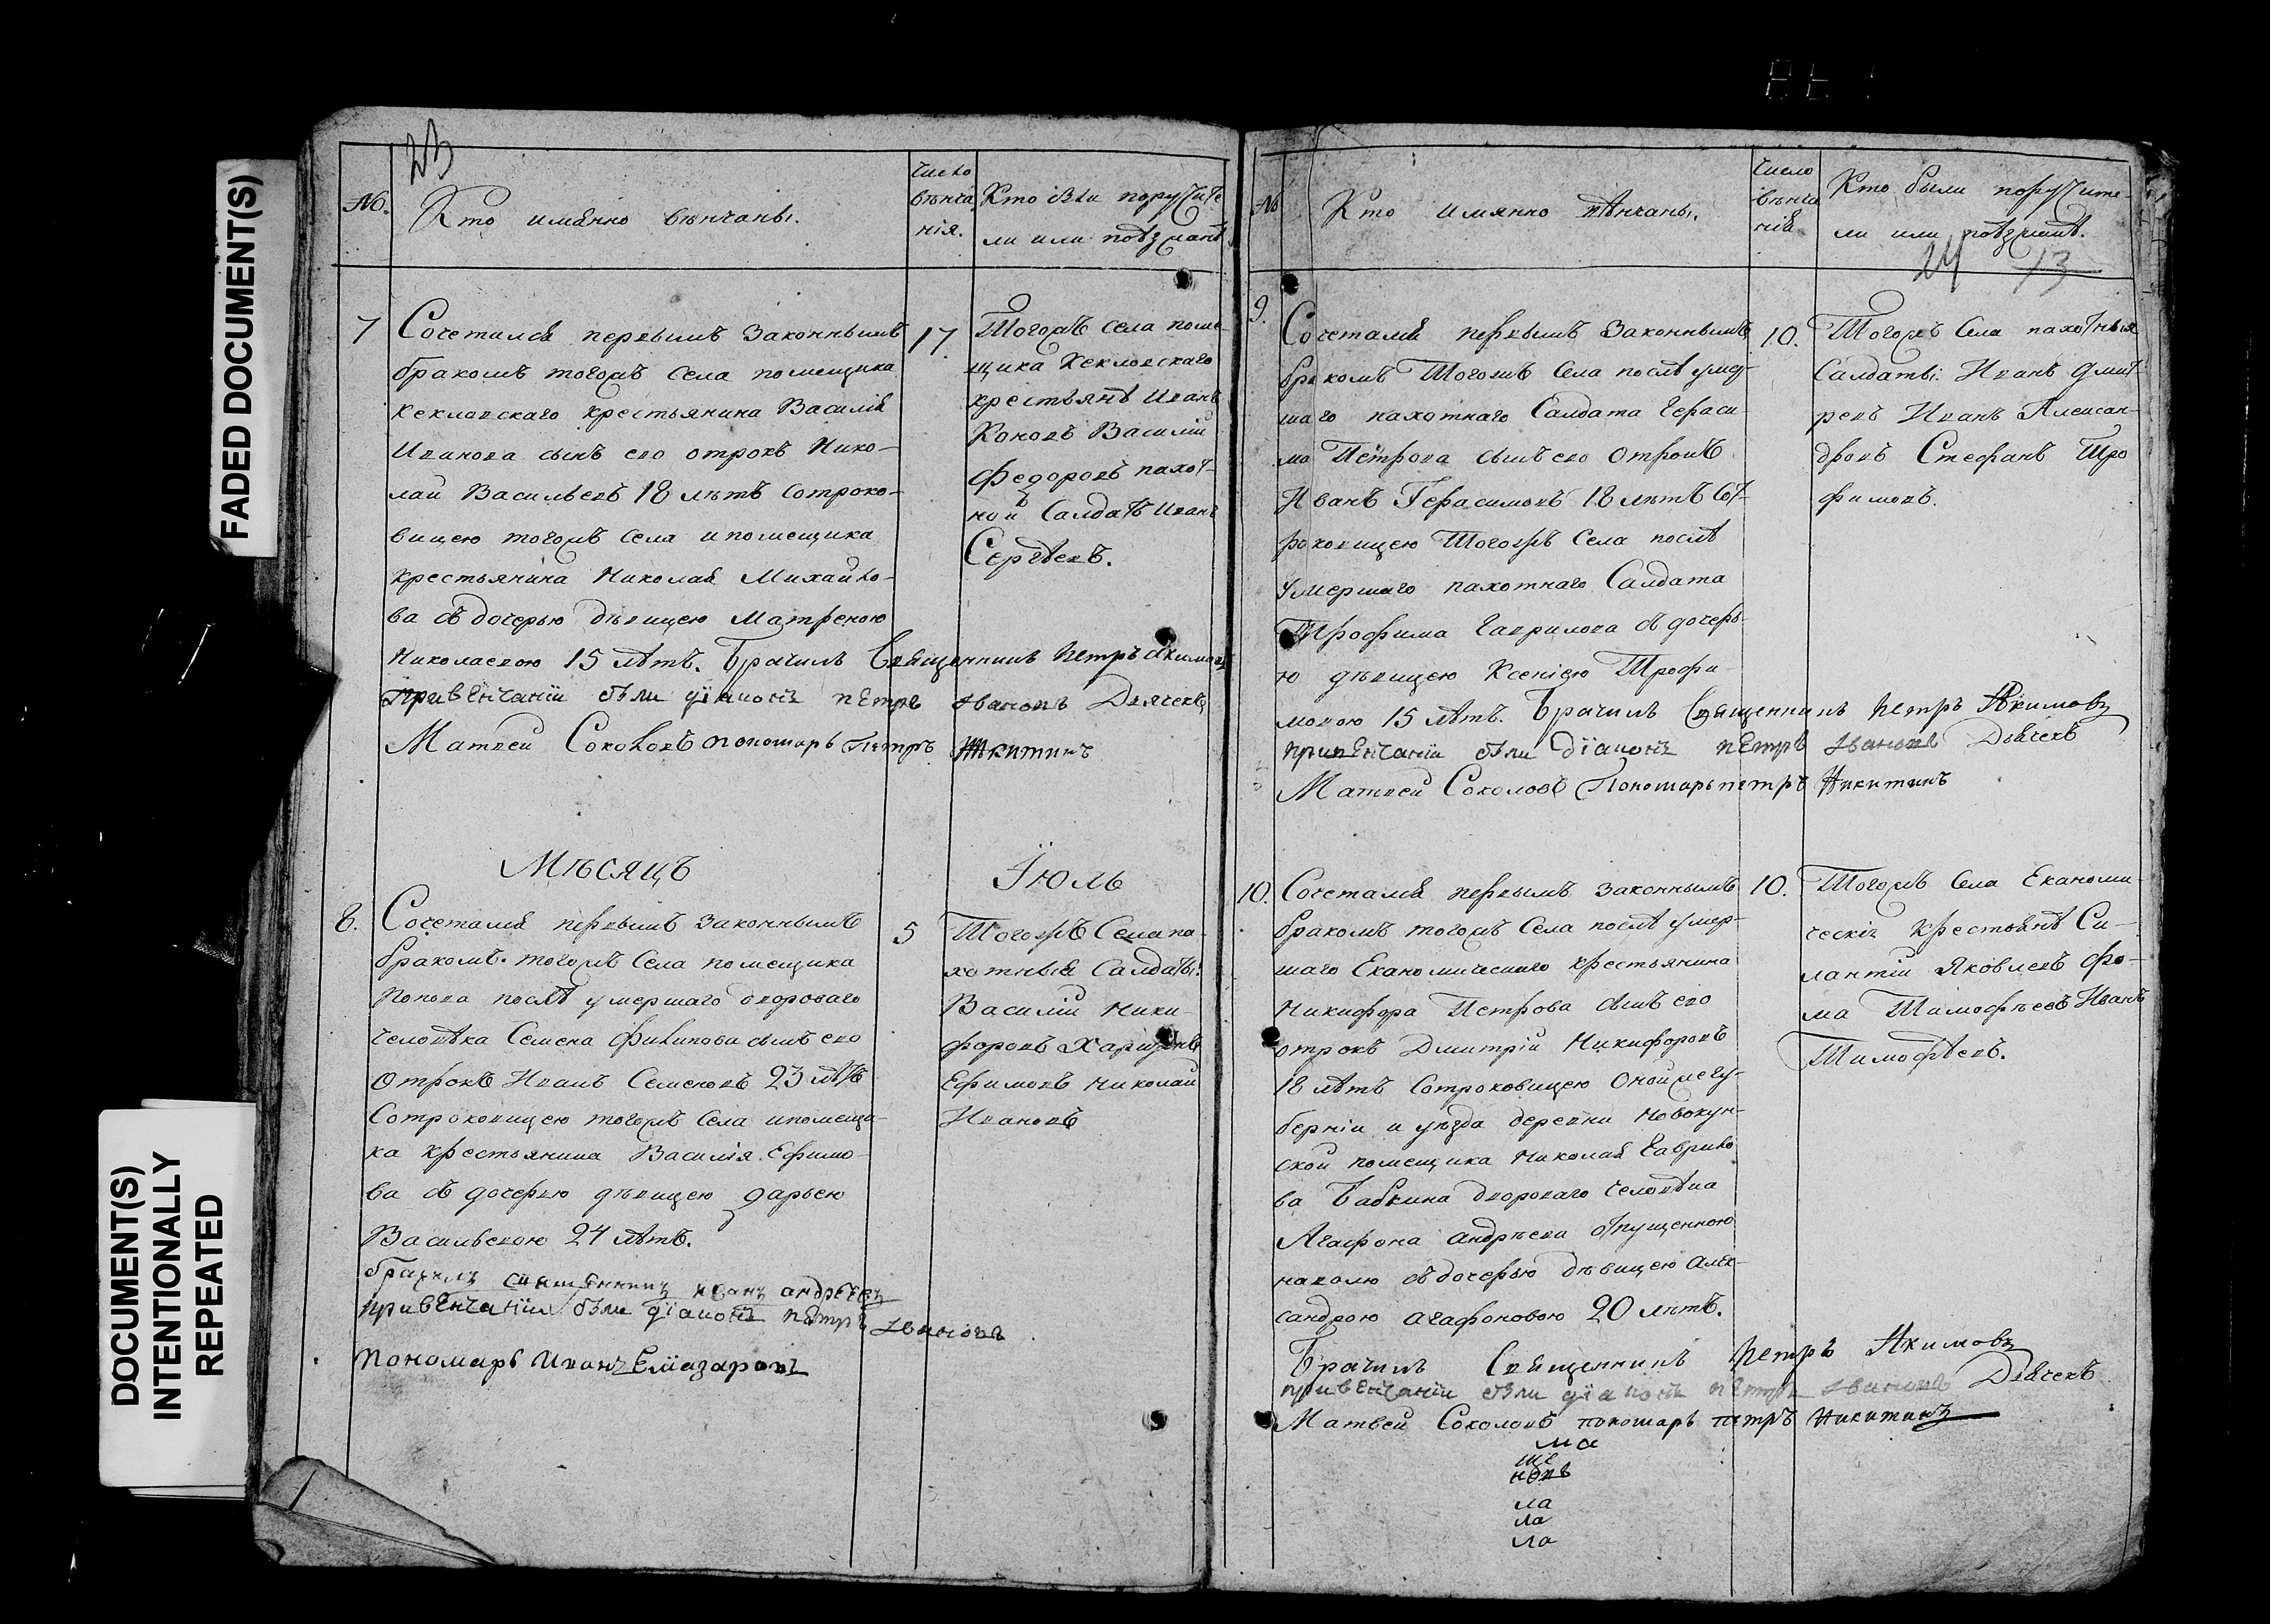 FADED DOCUMENT(S)
DOCUMENT(S)
INTENTIONALLY
REPEATED
23
№.
Кто имянно вѣнчаны.
число
вѣнча
нія.
Кто были поручите
ли или поѣзжанѣ
7
Сочетался первымъ законнымъ
бракомъ тогожъ села помещика
Кекловскаго крестьянина Василія
Иванова сынъ его отрокъ Нико-
лай Васильевъ 18 лѣтъ Сотроко-
вицею тогожъ села и помещика
крестьянина Николая Михайло-
ва съ дочерью дѣвицею Матреною
Николаевою 15 лѣтъ. Брачилъ Священникъ Петръ Акимовъ
привѣнчаніи были діаконъ пЕтръ Ивановъ Дьячекъ
Матвей Соколовъ пономарь Петръ Никитинъ
17.
Тогожъ села поме-
щика Кекловскаго
крестьянѣ Иванъ
Кововъ Василій
Федоровъ пахот-
ной Салдатъ Иванъ
Сергѣевъ.
Мѣсяцъ Іюль
8.
Сочетался первымъ законнымъ
бракомъ тогожъ Села помещика
Попова послѣ умершаго двороваго
человѣка Семена Филипова сынъ его
отрокъ Иванъ Семеновъ 23 лѣтъ
Сотроковицею тогожъ Села ипомещи-
ка крестьянина Василія Ефимо-
ва съ дочерью дѣвицею дарьею
Васильевою 24 лѣтъ.
брачилъ священникъ иванъ андрѣевъ
привѣнчаніи были діаконъ пЕтръ Ивановъ
пономарь Иванъ Елиазаровъ
5
Тогожъ Села па-
хотныя Салдаты:
Василій Ники-
форовъ Харитонъ
Ефимовъ Николай
Ивановъ
№
Кто имянно вѣнчаны.
число
вѣнча
нія
Кто были поручите-
ли или поѣзжанѣ.
24 13
9.
Сочетался первымъ законнымъ
бракомъ Тогожъ Села послѣ умер-
шаго пахотнаго Салдата Гераси
ма Петрова сынъ его отрокъ
Иванъ Герасимовъ 18 лѣтъ Сот-
роковицею Тогожъ Села послѣ
умершаго пахотнаго Салдата
Трофима Гаврилова съ дочерь-
ю дѣвицею Ксеніею Трофи-
мовою 15 лѣтъ. Брачилъ Священникъ Петръ Акимовъ
привѣнчаніи были діаконъ пЕтръ Ивановъ Дьячекъ
Матвей Соколовъ Пономарь петръ Никитинъ
10.
Тогожъ Села пахотныя
Салдаты: Иванъ Дмит-
ревъ Иванъ Алексан-
дровъ Стефанъ Тро
фимовъ.
10.
Сочетался первымъ законнымъ
бракомъ тогожъ Села послѣ умер-
шаго Еканомическаго крестьянина
Никифора Петрова сынъ его
отрокъ Дмитрій Никифоровъ
18 лѣтъ Сотроковицею Оной же гу-
берніи и уѣзда деревни Новокун-
ской помещика Николая Гаврило
ва Бабкина двороваго человѣка
Агафона андрѣева отпущенною
наволю съ дочерью дѣвицею алек-
сандрою агафоновою 20 лѣтъ.
Брачилъ Священникъ Петръ Акимовъ
привѣнчаніи были діаконъ пЕтръ Ивановъ Дьячекъ
Матвей Соколовъ пономарь петръ Никитинъ
10.
Тогожъ Села Еканоми-
ческія крестьянѣ Си-
лантій Яковлевъ Фо-
ма Тимофѣевъ Иванъ
Тимофѣевъ.
ма
ще
новъ
ла
ла
ла